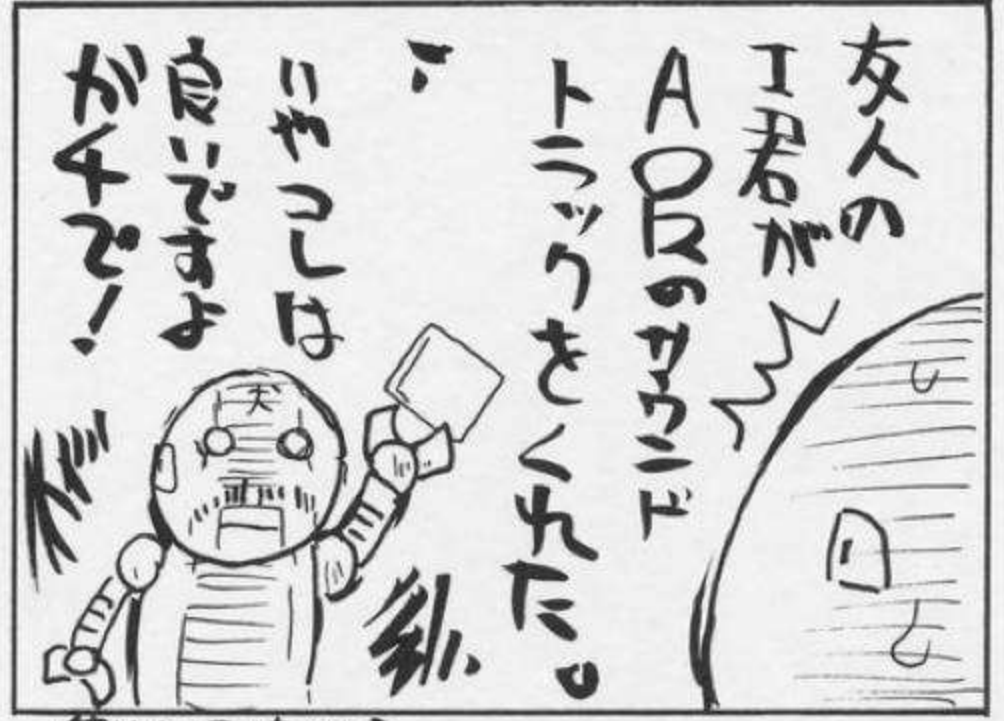 友人の
I君が
AORのサウンド
トラックをくれた。
いやコレは
良いですよ
ガチで!